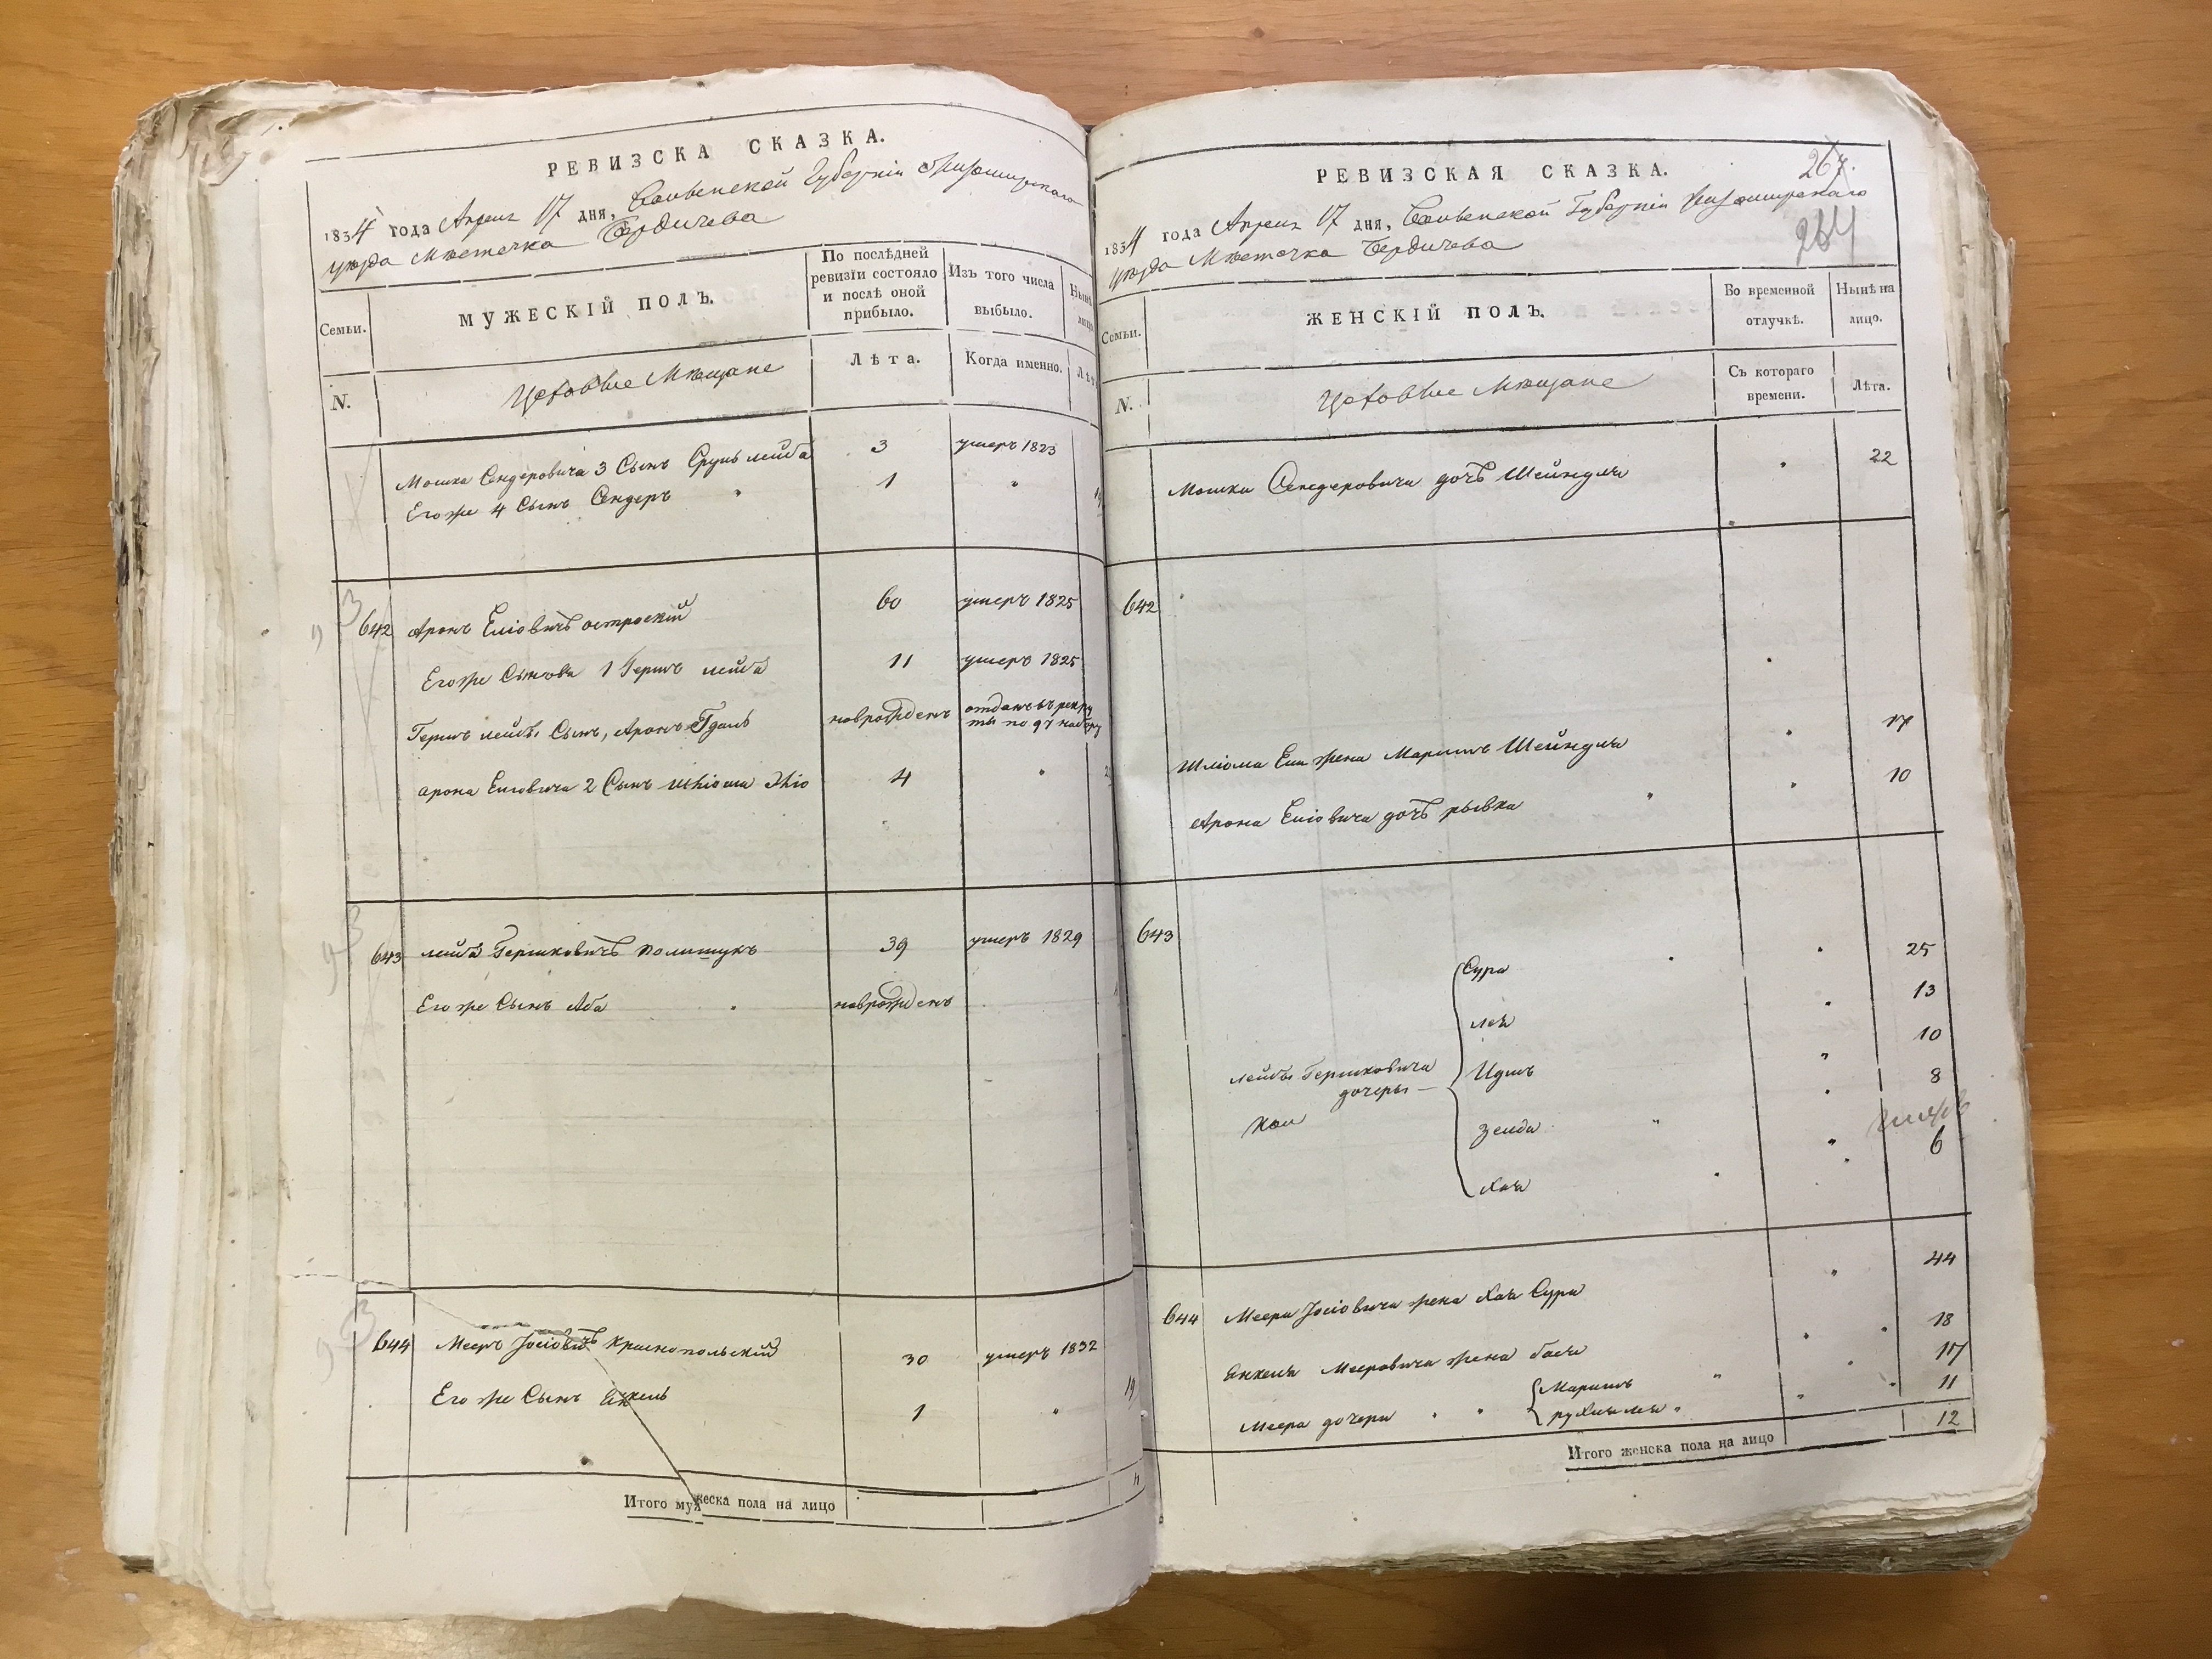 РЕВИЗСКА СКАЗКА.
1834 года Апреля 17 дня, Волынской Губернiи Житомирскаго
уѣзда Мѣстечка Бердичева
Семьи.
МУЖЕСКIЙ ПОЛЪ.
По послѣдней
ревизiи состояло
и послѣ оной
прибыло.
Изъ того числа
выбыло.
N.
Цеховые Мѣщане
Лѣта.
Когда именно.
Мошка Сендеровича 3 Сынъ Сруль лейба 3 умеръ 1823
Его же 4 Сынъ Сендеръ " 1 "
642 Аронъ Елiовичъ островскiй 60 умеръ 1825
Его же Сыновья 1 Гершъ лейба 11 умеръ 1825
Гершъ лейбы Сынъ, Аронъ новрожденъ отданъ въ рекру
ты по 97 набору
арона Елiовича 2 Сынъ 4 "
643 лейба Гершковичъ полищукъ 39 умеръ 1829
Его же Сынъ Аба " новрожденъ
644 Мееръ Iосiовичъ Краснопольскiй 30 умеръ 1832
Его же Сынъ Янкель 1 " 19
Итого мужеска пола на лицо
РЕВИЗСКАЯ СКАЗКА.
267.
264
1834 года Апреля 17 дня, Волынской Губернiи Житомирскаго
уѣзда Мѣстечка Бердичева
Семьи.
ЖЕНСКIЙ ПОЛЪ.
Во временной
отлучкѣ.
Нынѣ на
лицо.
N.
Цеховые Мѣщане
Съ котораго
времени.
Лѣта.
Мошки Сендеровича дочь Шейндля " 22
642
Шлiома Ели жена Маришъ Шейндля " 17
Арона Елiовича дочь рывка " " 10
643
Сура " " 25
лея " 13
лейбы Гершковича
дочеры
Идшъ " 10
Хаи
Зелда " " 8
Хая " " 6
644 Меера Iосiовича жена Хая Сура " 44
Янкеля Мееровича жена бася " 18
Меера дочери " " Маришъ " " 17
рухля лея " " 11
Итого женска пола на лицо 12